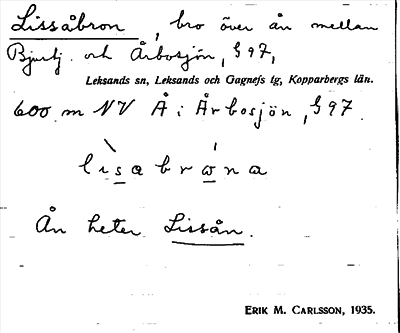 Lissåbron, bro över ån mellan
Bjurtj. och Årbosjön, § 97,
Leksands sn, Leksands och Gagnefs tg, Kopparbergs län.
600 m NV Å i Årbosjön, § 97.
lısabrωna
Ån heter Lissån.
ERIK M. CARLSSON, 1935.